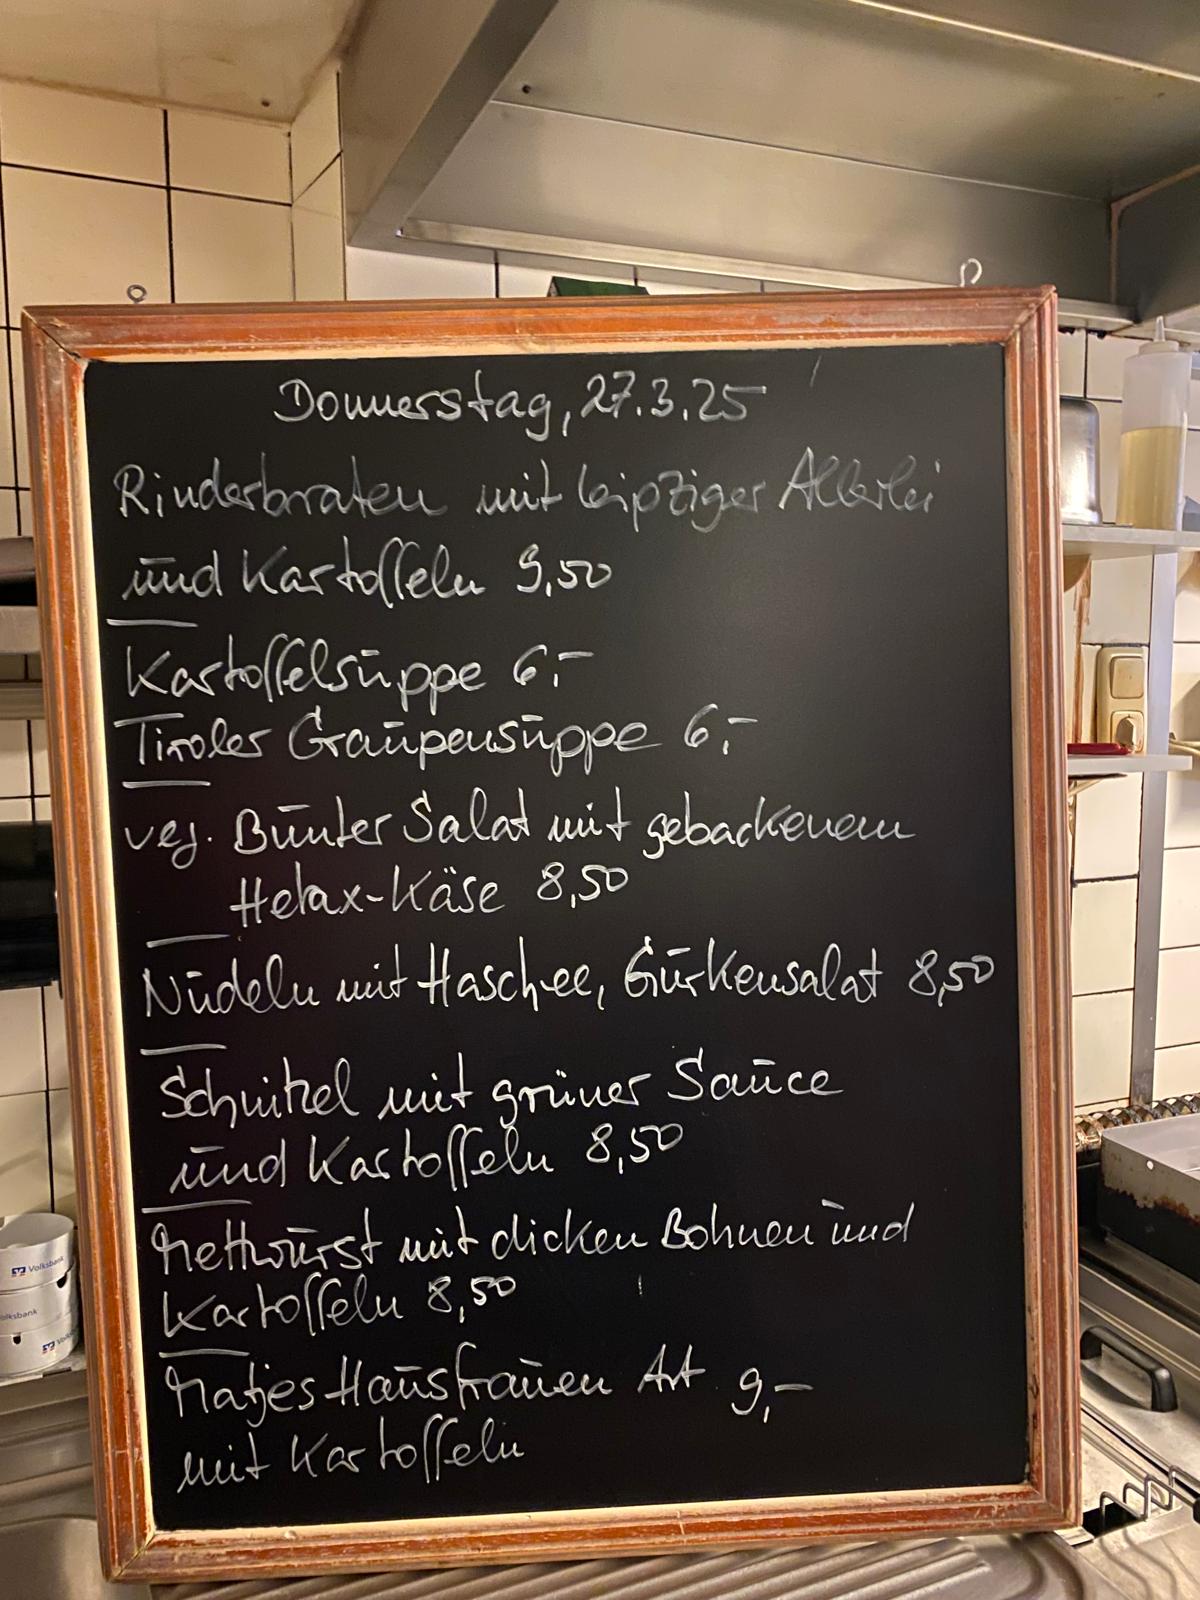 Donnerstag, 27.3.25
Rinderbraten mit Leipziger Allerlei
und Kartoffeln 9,50
Kartoffelsuppe 6,-
Tiroler Graupensuppe 6,-
veg. Bunter Salat mit gebackenem
Hetax-Käse 8,50
Nudeln mit Haschee, Gurkensalat 8,50
Schnitzel mit grüner Sauce
und Kartoffeln 8,50
Mettwurst mit dicken Bohnen und
Kartoffeln 8,50
Matjes Hausfrauen Art 9,-
mit Kartoffeln
Volksbank
Volksbank